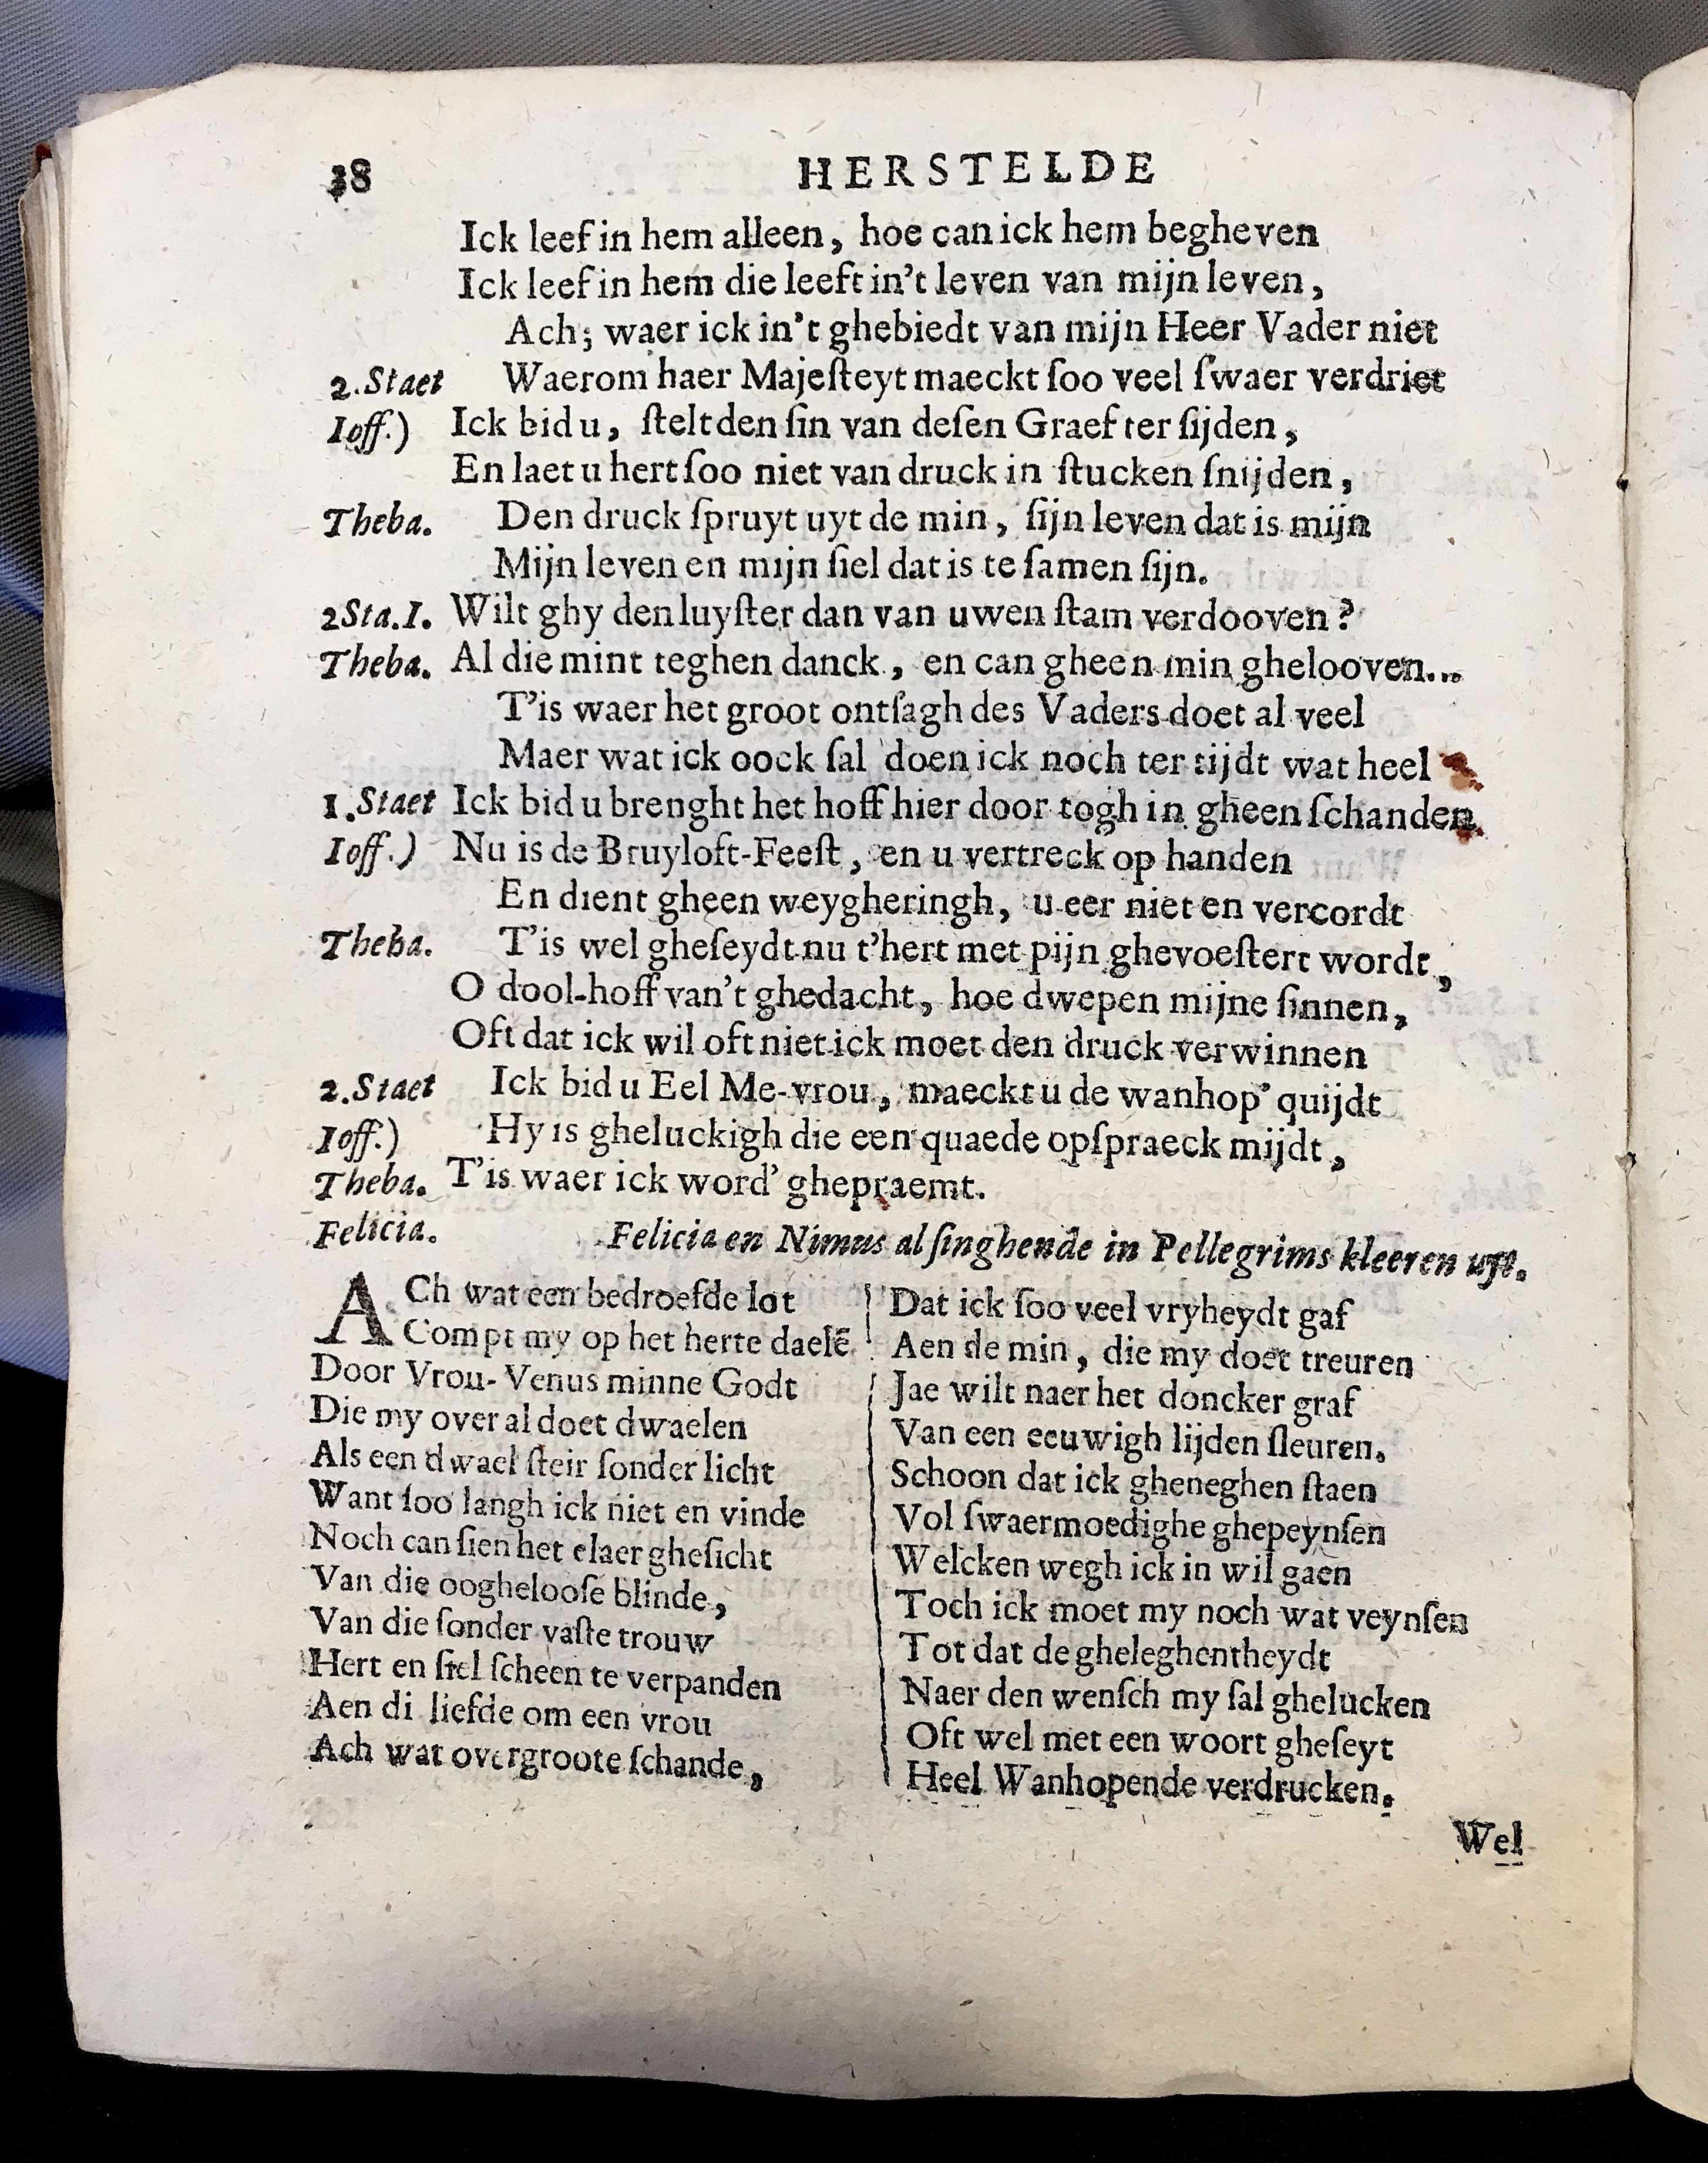 38 HERSTELDE
Ick leef in hem alleen, hoe can ick hem begheven
Ick leef in hem die leeft in't leven van mijn leven,
Ach; waer ick in't ghebiedt van mijn Heer Vader niet
2.Staet Waerom haer Majeſteyt maeckt ſoo veel ſwaer verdriet
Ioff.) Ick bid u, ſtelt den ſin van deſen Graef ter ſijden,
En laet u hert ſoo niet van druck in ſtucken ſnijden,
Theba. Den druck ſpruyt uyt de min, ſijn leven dat is mijn
Mijn leven en mijn ſiel dat is te ſamen ſijn.
2Sta.I. Wilt ghy den luyſter dan van uwen ſtam verdooven?
Theba. Al die mint teghen danck, en can gheen min ghelooven...
T'is waer het groot ontſagh des Vaders doet al veel
Maer wat ick oock ſal doen ick noch ter tijdt wat heel
1.Staet Ick bid u brenght het hoff hier door togh in gheen ſchanden.
Ioff.) Nu is de Bruyloft-Feeſt, en u vertreck op handen
En dient gheen weygheringh, u eer niet en vercordt
Theba. T'is wel gheſeydt nu t'hert met pijn ghevoeſtert wordt,
O dool-hoff van't ghedacht, hoe dwepen mijne ſinnen,
Oft dat ick wil oft niet ick moet den druck verwinnen
2.Staet Ick bid u Eel Me-vrou, maeckt u de wanhop' quijdt
Ioff.) Hy is gheluckigh die een quaede opſpraeck mijdt,
Theba. T'is waer ick word' ghepraemt.
Felicia. Felicia en Nimus al ſinghende in Pellegrims kleeren uyt.
ACh wat een bedroefde lot
Compt my op het herte daelē
Door Vrou-Venus minne Godt
Die my over al doet dwaelen
Als een dwael ſteir ſonder licht
Want ſoo langh ick niet en vinde
Noch can ſien het claer gheſicht
Van die oogheloose blinde,
Van die ſonder vaſte trouw
Hert en ſiel ſcheen te verpanden
Aen di liefde om een vrou
Ach wat overgroote ſchande,
Dat ick ſoo veel vryheydt gaf
Aen de min, die my doet treuren
Jae wilt naer het doncker graf
Van een eeuwigh lijden ſleuren.
Schoon dat ick gheneghen ſtaen
Vol ſwaermoedighe ghepeynſen
Welcken wegh ick in wil gaen
Toch ick moet my noch wat veynſen
Tot dat de gheleghentheydt
Naer den wenſch my ſal ghelucken
Oft wel met een woort gheſeyt
Heel Wanhopende verdrucken.
Wel